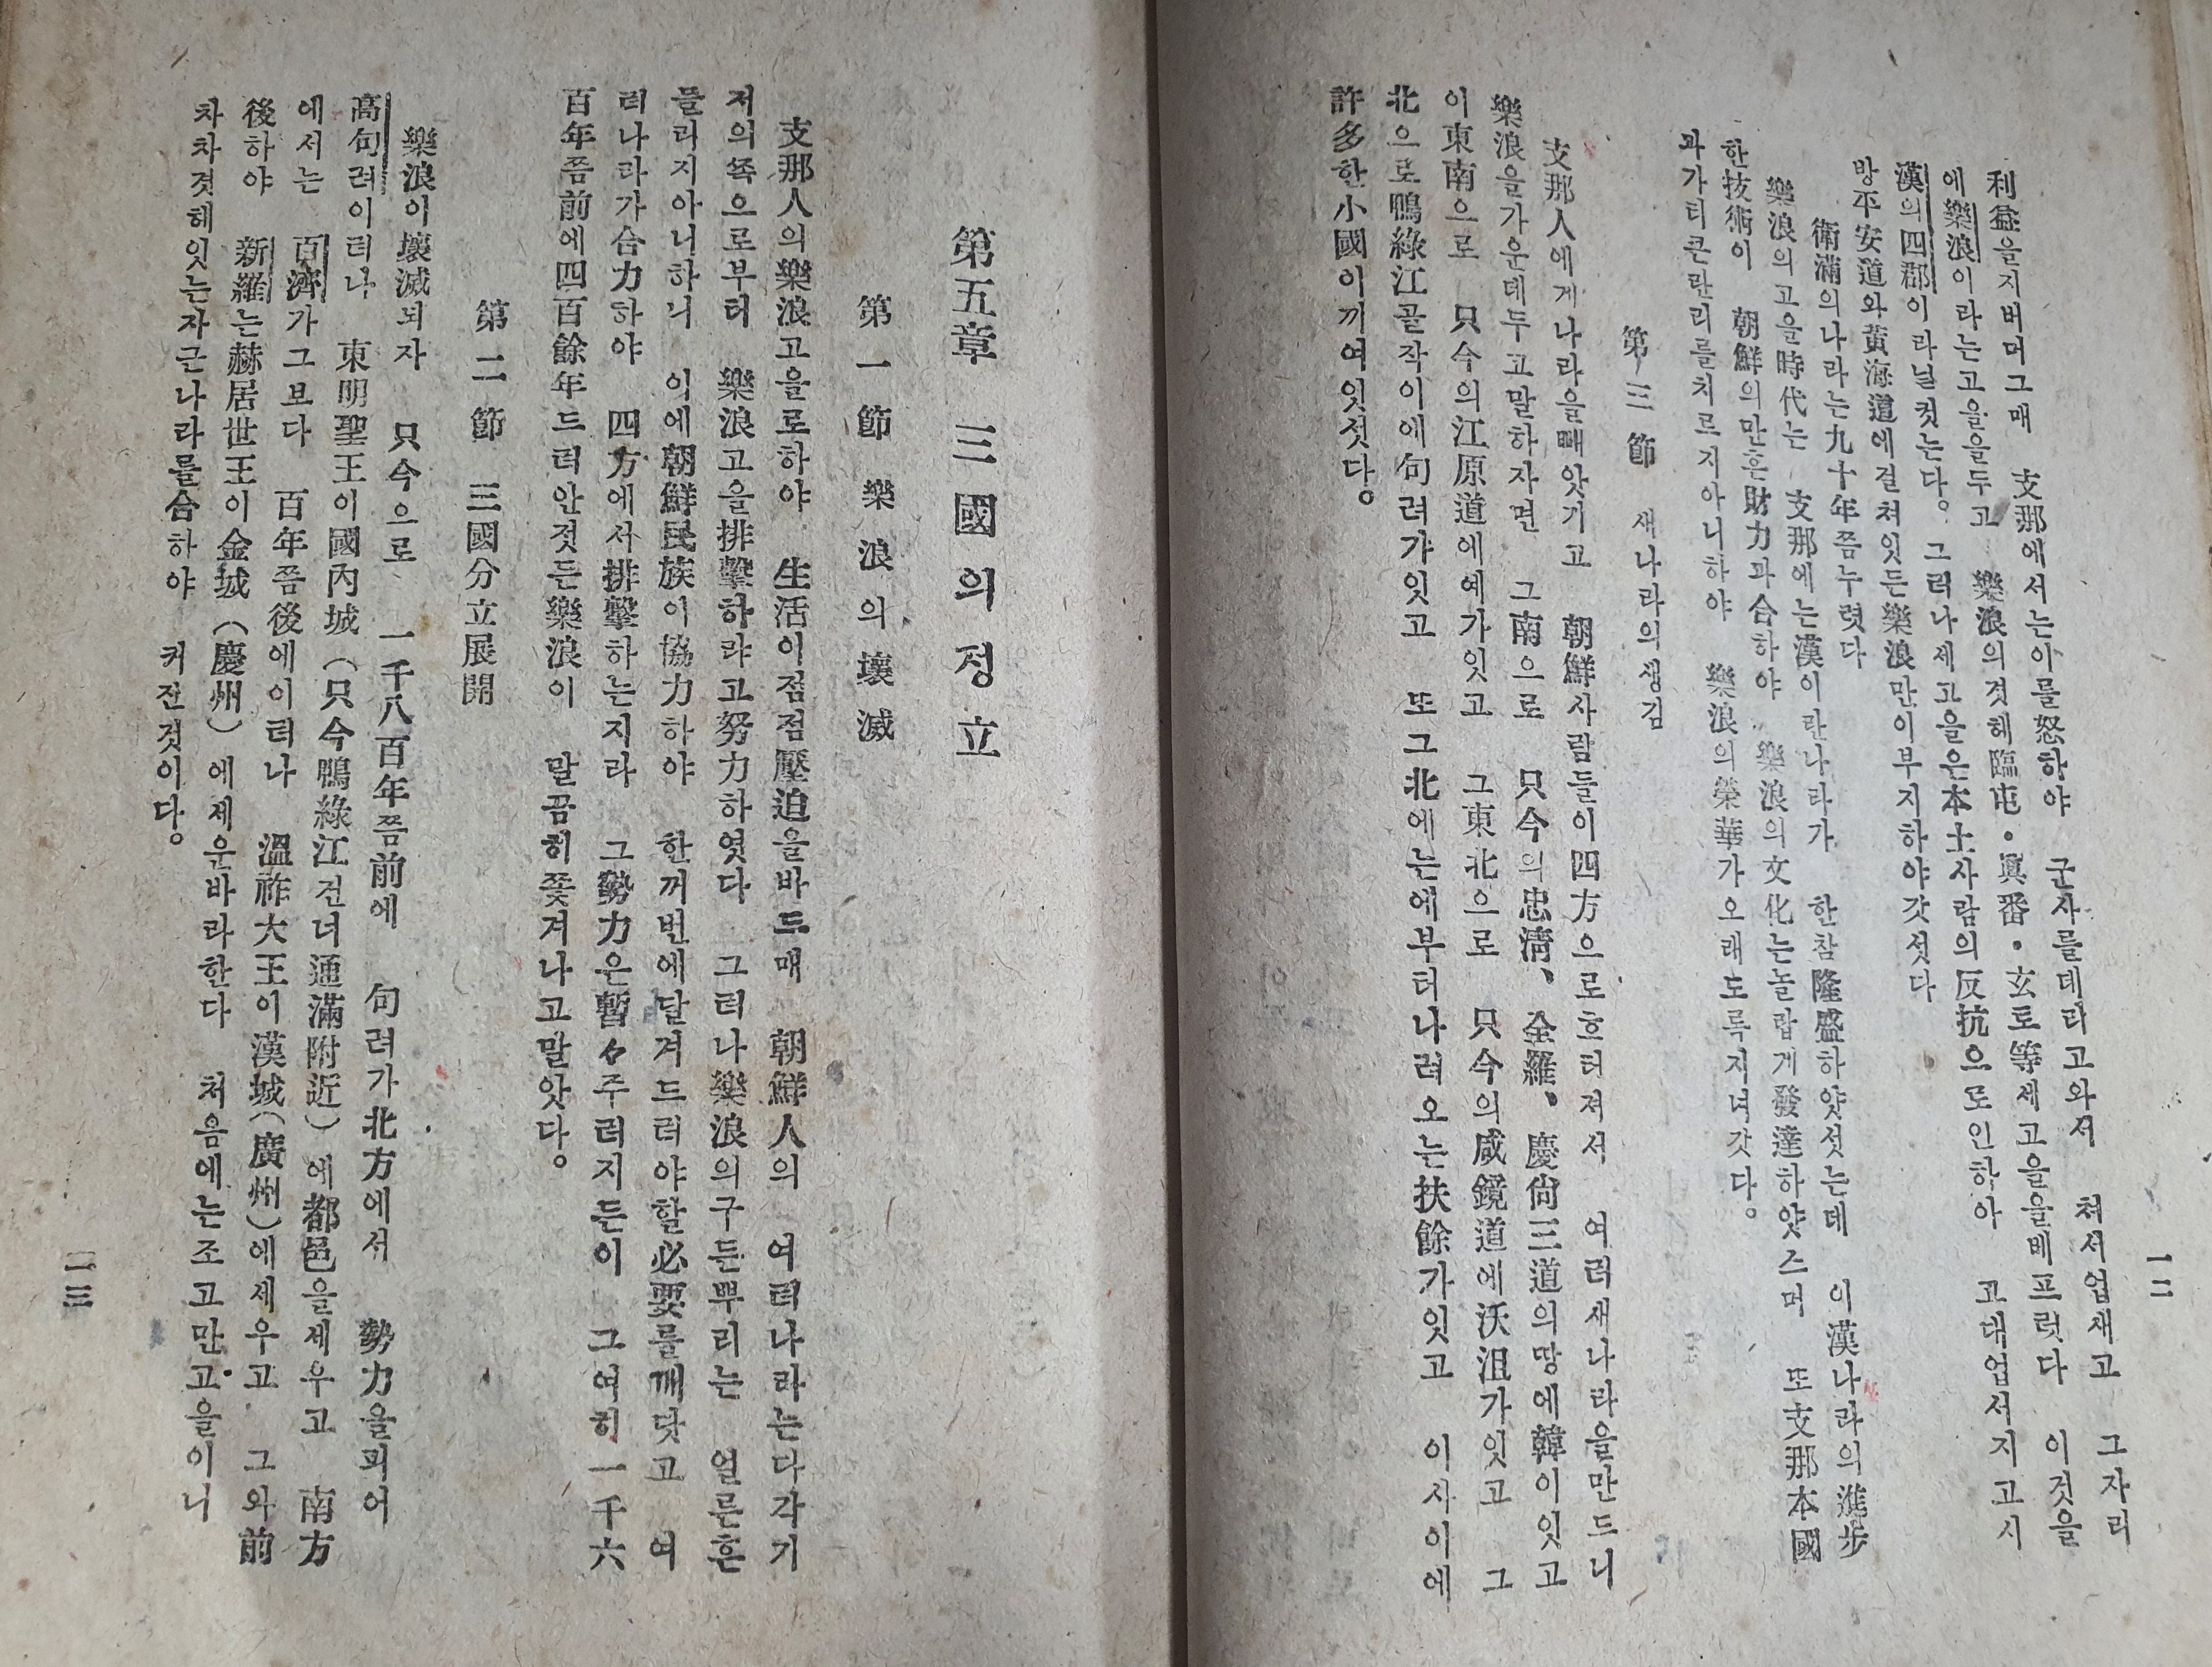 一二
利益을지버머그매 支那에서는이를怒하야 군사를데리고와서 쳐서업새고 그자리
에樂浪이라는고을을두고 樂浪의겻헤臨屯・眞番・玄토等세고을을베프럿다 이것을
漢의四郡이라닐컷는다。그러나세고을은本土사람의反抗으로인하아 고대업서지고시
방平安道와黃海道에걸쳐잇든樂浪만이부지하야갓섯다
衛滿의나라는九十年쯤누렷다
樂浪의고을時代는 支那에는漢이란나라가 한참隆盛하얏섯는데 이漢나라의進步
한技術이 朝鮮의만흔財力과合하야 樂浪의文化는놀랍게發達하얏스며 또支那本國
과가티큰란리를치르지아니하야 樂浪의榮華가오래도록지녀갓다。
第三節 새나라의생김
支那人에게나라을빼앗기고 朝鮮사람들이四方으로흐터져서 여러새나라을만드니
樂浪을가운데두고말하자면 그南으로 只今의忠淸、全羅、慶尙三道의땅에韓이잇고
이東南으로 只今의江原道에예가잇고 그東北으로 只今의咸鏡道에沃沮가잇고 그
北으로鴨綠江골작이에句려가잇고 또그北에는에부터나려오는扶餘가잇고 이사이에
許多한小國이끼여잇섯다。
第五章 三國의정立
第一節 樂浪의壞滅
支那人의樂浪고을로하야 生活이점점壓迫을바드매 朝鮮人의 여러나라는다각기
저의쪽으로부터 樂浪고을排擊하랴고努力하엿다 그러나樂浪의구든뿌리는 얼른흔
들리지아니하니 이에朝鮮民族이協力하야 한꺼번에달겨드러야할必要를깨닷고 여
러나라가合力하야 四方에서排擊하는지라 그勢力은暫々주러지든이 그여히一千六
百年쯤前에四百餘年드러안젓든樂浪이 말끔히쫓겨나고말앗다。
第二節 三國分立展開
樂浪이壞滅되자 只今으로 一千八百年쯤前에 句려가北方에서 勢力을펴어
高句려이러니 東明聖王이國內城(只今鴨綠江건너通滿附近)에都邑을세우고 南方
에서는 百濟가그보다 百年쯤後에이러나 溫祚大王이漢城(廣州)에세우고 그와前
後하야 新羅는赫居世王이金城(慶州)에세운바라한다 처음에는조고만고을이니
차차겻헤잇는자근나라를合하야 커진것이다。
一三